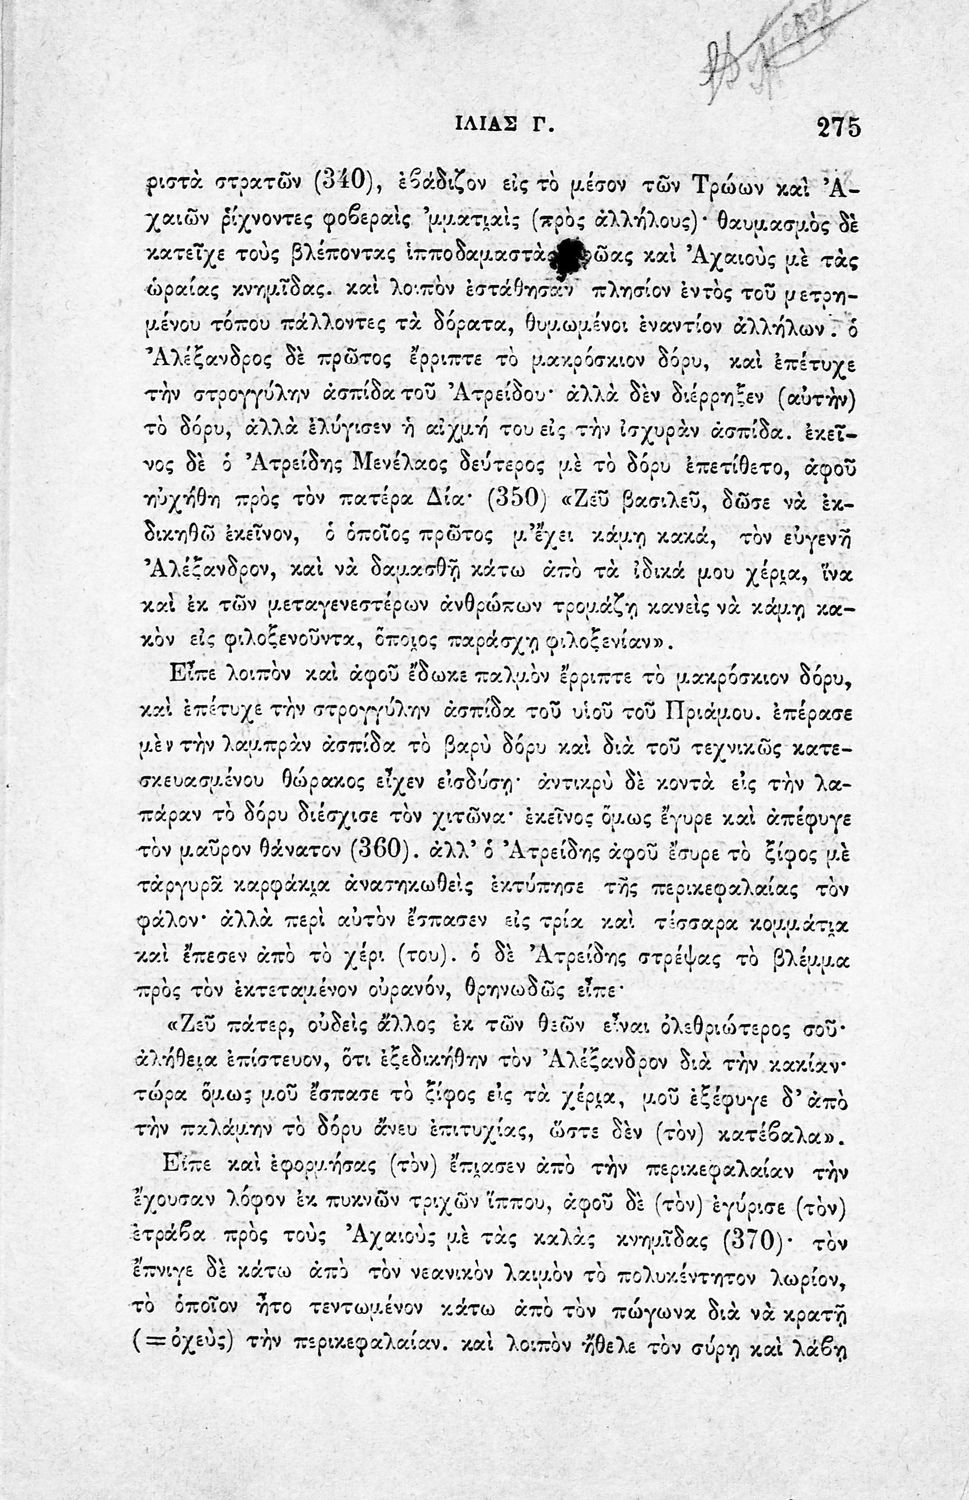 ΙΛΙΑΣ Γ. 275
ριστὰ στρατῶν (340), ἐβάδιζον εἰς τὸ μέσον τῶν Τρώων καὶ Ἀ-
χαιῶν ῥίχνοντες φοβεραὶς ’μματιαὶς (πρὸς ἀλλήλους)· θαυμασμὸς δὲ
κατεῖχε τοὺς βλέποντας ἱπποδαμαστὰς καὶ Ἀχαιοὺς μὲ τὰς
ὡραίας κνημῖδας. καὶ λοιπὸν ἐστάθησαν πλησίον ἐντὸς τοῦ μετρη-
μένου τόπου πάλλοντες τὰ δόρατα, θυμωμένοι ἐναντίον ἀλλήλων. ὁ
Ἀλέξανδρος δὲ πρῶτος ἔρριπτε τὸ μακρόσκιον δόρυ, καὶ ἐπέτυχε
τὴν στρογγύλην ἀσπίδα τοῦ Ἀτρείδου· ἀλλὰ δὲν διέρρηξεν (αὐτὴν)
τὸ δόρυ, ἀλλὰ ἐλύγισεν ἡ αἰχμή του εἰς τὴν ἰσχυρὰν ἀσπίδα. ἐκεῖ-
νος δὲ ὁ Ἀτρείδης Μενέλαος δεύτερος μὲ τὸ δόρυ ἐπετίθετο, ἀφοῦ
ηὐχήθη πρὸς τὸν πατέρα Δία· (350) «Ζεῦ βασιλεῦ, δῶσε νὰ ἐκ-
δικηθῶ ἐκεῖνον, ὁ ὁποῖος πρῶτος μ’ἔχει κάμῃ κακά, τὸν εὐγενῆ
Ἀλέξανδρον, καὶ νὰ δαμασθῇ κάτω ἀπὸ τὰ ἰδικά μου χέρια, ἵνα
καὶ ἐκ τῶν μεταγενεστέρων ἀνθρώπων τρομάζῃ κανεὶς νὰ κάμῃ κα-
κὸν εἰς φιλοξενοῦντα, ὅποιος παράσχῃ φιλοξενίαν».
Εἶπε λοιπὸν καὶ ἀφοῦ ἔδωκε παλμὸν ἔρριπτε τὸ μακρόσκιον δόρυ,
καὶ ἐπέτυχε τὴν στρογγύλην ἀσπίδα τοῦ υἱοῦ τοῦ Πριάμου. ἐπέρασε
μὲν τὴν λαμπρὰν ἀσπίδα τὸ βαρὺ δόρυ καὶ διὰ τοῦ τεχνικῶς κατε-
σκευασμένου θώρακος εἶχεν εἰσδύσῃ· ἀντικρὺ δὲ κοντὰ εἰς τὴν λα-
πάραν τὸ δόρυ διέσχισε τὸν χιτῶνα· ἐκεῖνος ὅμως ἔγυρε καὶ ἀπέφυγε
τὸν μαῦρον θάνατον (360). ἀλλ’ ὁ Ἀτρείδης ἀφοῦ ἔσυρε τὸ ξίφος μὲ
τἀργυρᾶ καρφάκια ἀνασηκωθεὶς ἐκτύπησε τῆς περικεφαλαίας τὸν
φάλον· ἀλλὰ περὶ αὐτὸν ἔσπασεν εἰς τρία καὶ τέσσαρα κομμάτια
καὶ ἔπεσεν ἀπὸ τὸ χέρι (του). ὁ δὲ Ἀτρείδης στρέψας τὸ βλέμμα
πρὸς τὸν ἐκτεταμένον οὐρανόν, θρηνωδῶς εἶπε·
«Ζεῦ πάτερ, οὐδεὶς ἄλλος ἐκ τῶν θεῶν εἶναι ὀλεθριώτερος σοῦ·
ἀλήθεια ἐπίστευον, ὅτι ἐξεδικήθην τὸν Ἀλέξανδρον διὰ τὴν κακίαν·
τώρα ὅμως μοῦ ἔσπασε τὸ ξίφος εἰς τὰ χέρια, μοῦ ἐξέφυγε δ’ ἀπὸ
τὴν παλάμην τὸ δόρυ ἄνευ ἐπιτυχίας, ὥστε δὲν (τὸν) κατέβαλα».
Εἶπε καὶ ἐφορμήσας (τὸν) ἔπιασεν ἀπὸ τὴν περικεφαλαίαν τὴν
ἔχουσαν λόφον ἐκ πυκνῶν τριχῶν ἵππου, ἀφοῦ δὲ (τὸν) ἐγύρισε (τὸν)
ἐτράβα πρὸς τοὺς Ἀχαιοὺς μὲ τὰς καλὰς κνημῖδας (370)· τὸν
ἔπνιγε δὲ κάτω ἀπὸ τὸν νεανικὸν λαιμὸν τὸ πολυκέντητον λωρίον,
τὸ ὁποῖον ἦτο τεντωμένον κάτω ἀπὸ τὸν πώγωνα διὰ νὰ κρατῇ
(=ὀχεὺς) τὴν περικεφαλαίαν. καὶ λοιπὸν ἤθελε τὸν σύρῃ καὶ λάβῃ